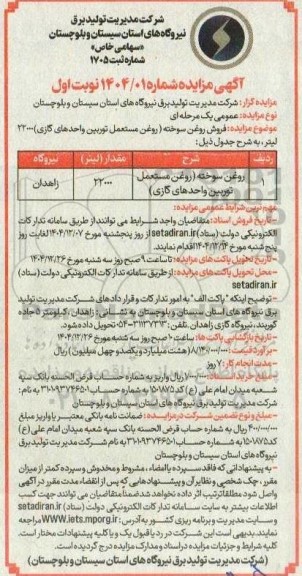 شرکت مدیریت تولید برق
نیروگاه‌های استان سیستان و بلوچستان
«سهامی خاص»
شماره ثبت ۱۷۰۵
آگهی مزایده شماره ۱۴۰۴/۰۱ نوبت اول
مزایده گزار: شرکت مدیریت تولید برق نیروگاه های استان سیستان و بلوچستان
نوع مزایده: عمومی یک مرحله ای
موضوع مزایده: فروش روغن سوخته (روغن مستعمل توربین واحدهای گازی) ۲۲۰۰۰
لیتر، به شرح جدول ذیل:
ردیف شرح مقدار (لیتر) نیروگاه
۱ روغن سوخته (روغن مستعمل توربین واحدهای گازی) ۲۲۰۰۰ زاهدان
مهم ترین شرایط عمومی مزایده:
-تاریخ فروش اسناد: متقاضیان واجد شرایط می توانند از طریق سامانه تدارکات
الکترونیکی دولت (ستاد) setadiran.ir از روز پنجشنبه مورخ ۱۴۰۴/۱۲/۰۷ لغایت روز
پنج شنبه مورخ ۱۴۰۴/۱۲/۱۴ اقدام نمایند.
-تاریخ تحویل پاکت های مزایده: تا ساعت ۹ صبح روز سه شنبه مورخ ۱۴۰۴/۱۲/۲۶
-محل تحویل پاکت های مزایده: از طریق سامانه تدارکات الکترونیکی دولت (ستاد)
setadiran.ir
-توضیح اینکه "پاکت الف" به امور تدارکات و قراردادهای شرکت مدیریت تولید
برق نیروگاه های استان سیستان و بلوچستان به نشانی: زاهدان، کیلومتر ۵ جاده
کورین، نیروگاه گازی زاهدان تلفن: ۳۱۱۳۷۳۱۳-۰۵۴ تحویل داده شود.
-تاریخ بازگشایی پاکت ها: ساعت ۱۰ صبح روز سه شنبه مورخ ۱۴۰۴/۱۲/۲۶
-برآورد قیمت: ۸/۱۴۰/۰۰۰/۰۰۰ (هشت میلیارد و یکصد و چهل میلیون) ریال
-مدت انجام کار: ۷ روز
-مبلغ خرید اسناد: ۱/۰۰۰/۰۰۰ ریال واریز به شماره حساب قرض الحسنه بانک سپه
شعبه میدان امام علی (ع) کد ۱۵۰۸۷۵ به شماره حساب ۳۱۰۱۰۹۳۷۴۶۵۱ به نام:
شرکت مدیریت تولید برق نیروگاه های استان سیستان و بلوچستان
-مبلغ و نوع تضمین شرکت در مزایده: ضمانت نامه بانکی معتبر یا واریز مبلغ
۴۰۰/۰۰۰/۰۰۰ ریال به شماره حساب قرض الحسنه بانک سپه شعبه میدان امام علی (ع)
کد ۱۵۰۸۷۵ به شماره حساب ۳۱۰۱۰۹۳۷۴۶۵۱ به نام شرکت مدیریت تولید برق
نیروگاه های استان سیستان و بلوچستان
-به پیشنهاداتی که فاقد سپرده یا امضاء، مشروط و مخدوش و سپرده کمتر از میزان
مقرر، چک شخصی و نظایر آن و پیشنهادهایی که پس از انقضاء مدت مقرر در آگهی
واصل شود مطلقا ترتیب اثر داده نخواهد شد ضمنا متقاضیان می توانند جهت کسب
اطلاعات بیشتر به سایت سامانه تدارکات الکترونیکی دولت (ستاد) setadiran.ir
و سایت مدیریت و برنامه ریزی کشور به آدرس: WWW.iets.mporg.ir مراجعه
نمایند. بدیهی است این شرکت در رد یا قبول یک و یا کلیه پیشنهادات مختار است.
کلیه شرایط و جزئیات مزایده در اسناد و مدارک مزایده درج گردیده است.
(شرکت مدیریت تولید برق نیروگاه های استان سیستان و بلوچستان)